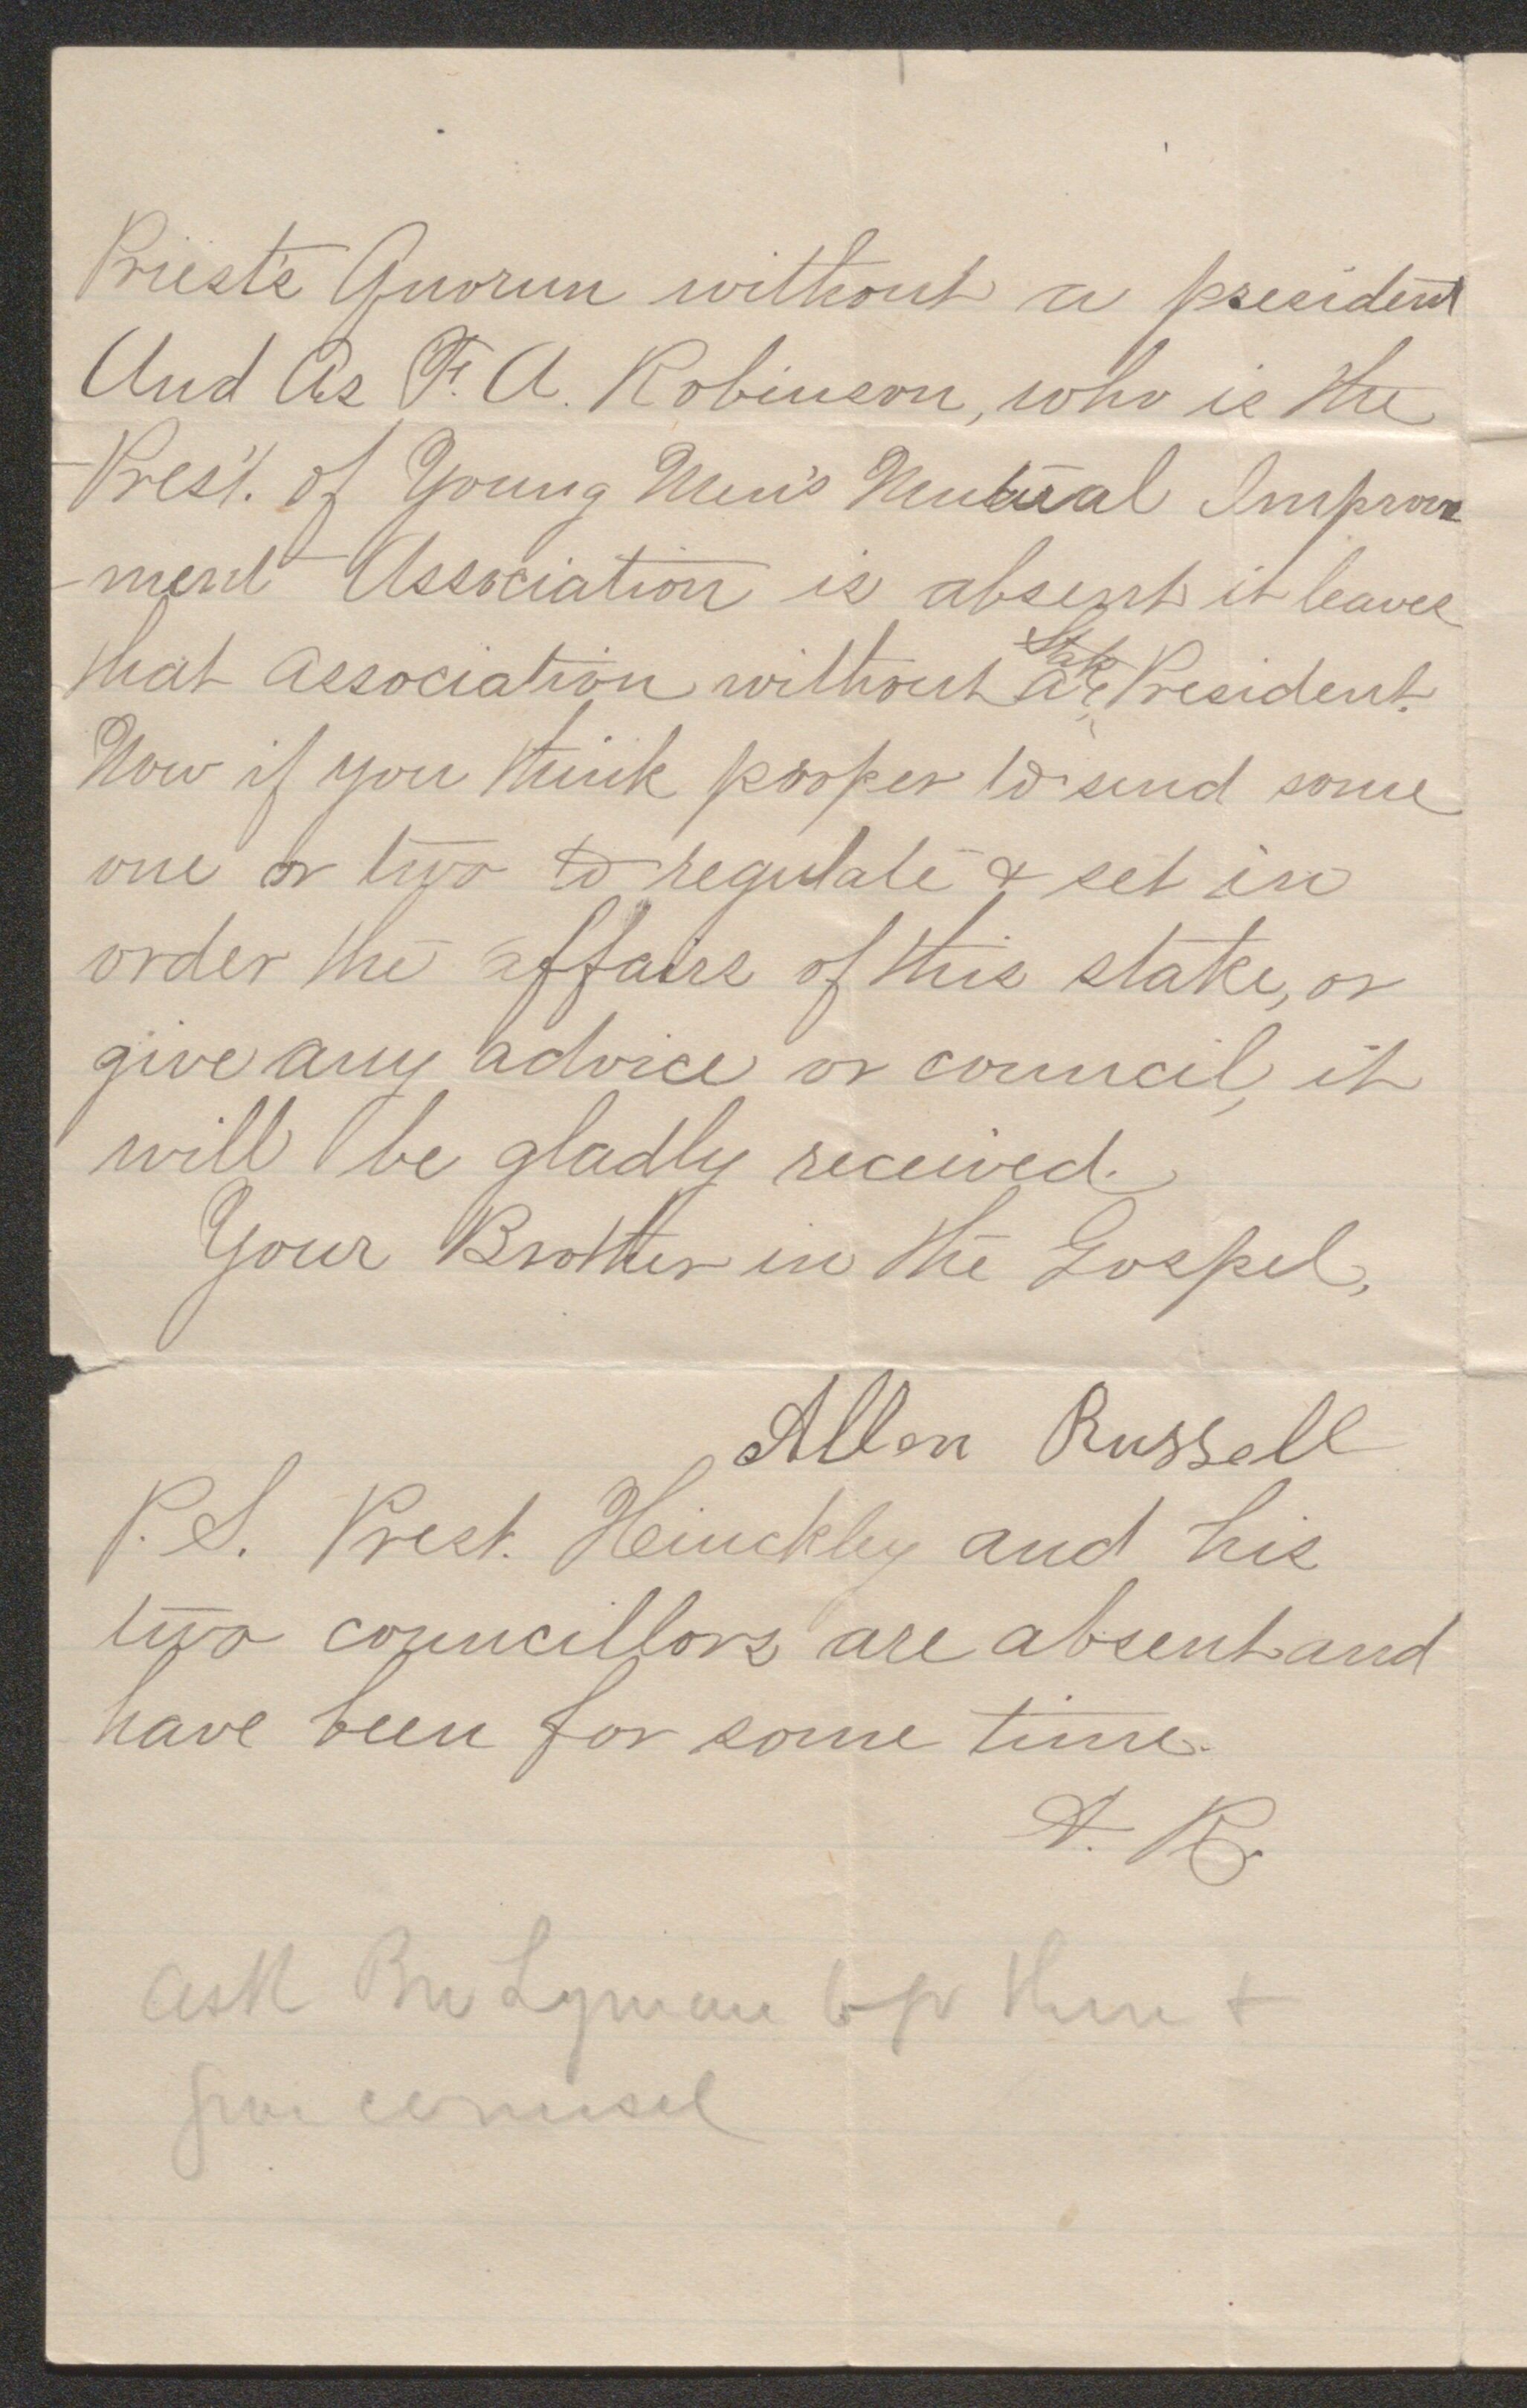 Priest's Quorum without a president
And As F. A. Robinson, who is the
Pres't. of Young Men's Mutual Improve
-ment Association is absent it leaves
that association without a Stake President.
Now if you think proper to send some
one or two to regulate & set in
order the affairs of this stake, or
give any advice or council, it
will be gladly received.
Your Brother in the Gospel,
Allen Russell
P.S. Prest. Hinckley and his
two councillors are absent and
have been for some time.
A. R.
ask Bro Lyman to go there &
give counsel